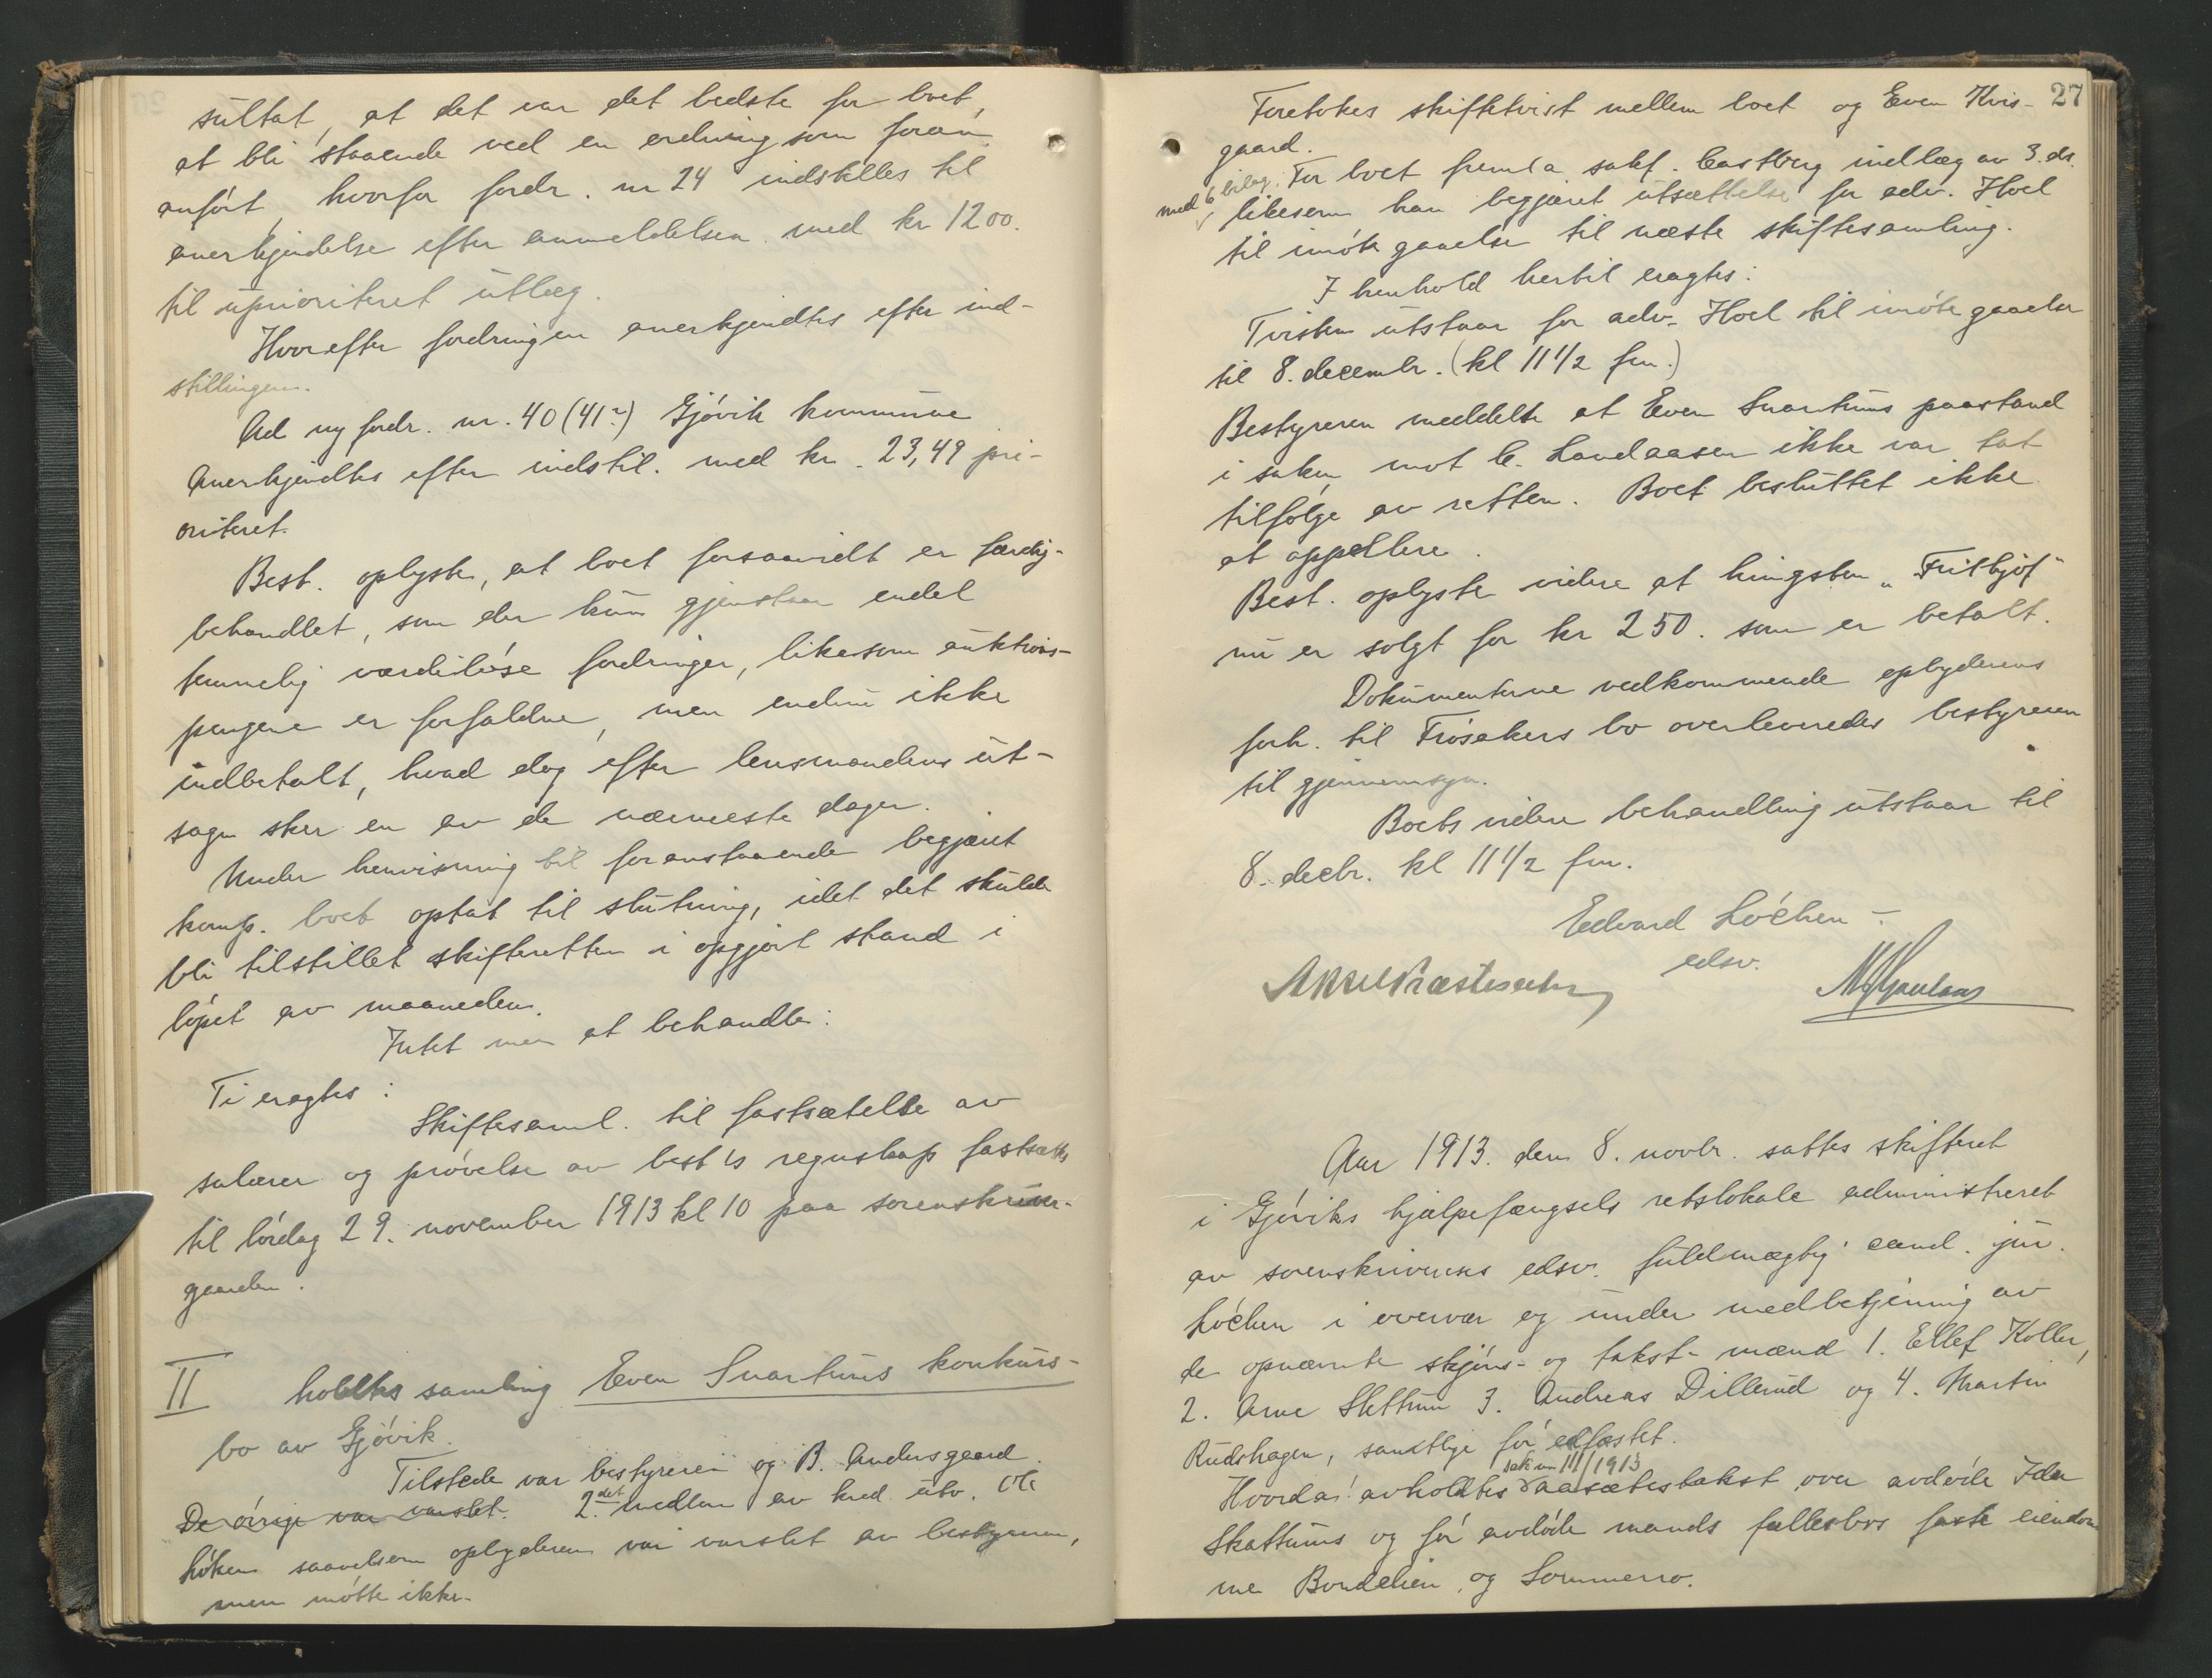 sultat, at det var det bedste for boet,
at bli staaende ved en ordning som foran
anført, hvorfor fordr. nr 24 indstilles til
anerkjendelse efter anmeldelsen med kr 1200.
til uprioriteret utlæg.
Hvorefter fordringen anerkjendtes efter ind-
stillingen.
Ad ny fordr. nr. 40 (41?) Gjøvik kommune
Anerkjendtes efter indstil. med kr. 23,49 pri-
oriteret.
Best. oplyste, at boet forsaavidt er færdig-
behandlet, som der kun gjenstaar endel
temmelig værdiløse fordringer, likesom auktions-
pengene er forfaldne, men endnu ikke
indbetalt, hvad dog efter lensmandens ut-
sagn sker en av de nærmeste dager.
Under henvisning til foranstaaende begjært
komp. boet optat til slutning, idet det skulde
bli tilstillet skifteretten i opgjort stand i
løpet av maaneden.
Intet mer at behandle:
Ti eragtes:
Skiftesaml. til fastsættelse av
salærer og prøvelse av best's regnskap fastsættes
til lørdag 29. november 1913 kl 10 paa sorenskriver-
gaarden.
II holdtes samling Even Snartums konkurs-
bo av Gjøvik.
Tilstede var bestyreren og B. Andersgaard.
De øvrige var varslet. 2det medlem av kred. utv. Ole
Løken saavelsom oplyderen var varslet av bestyreren,
men møtte ikke.
27
Foretokes skiftetvist mellem boet og Even Kvis-
gaard.
med 6 bilag.
For boet fremla sakf. Castberg indlæg av 3. ds.
likesom han begjæret utsættelse for adv. Hoel
til imøtegaaelse til næste skiftesamling.
I henhold hertil eragtes:
Tvisten utstaar for adv. Hoel til imøtegaaelse
til 8. decembr. (kl 11 1/2 fm.)
Bestyreren meddelte at Even Snartums paastand
i saken mot C. Landaasen ikke var tat
tilfølge av retten. Boet besluttet ikke
at appellere.
Best. oplyste videre at hingsten "Fritkjof"
nu er solgt for kr 250. som er betalt.
Dokumenterne vedkommende opbyderens
forh. til Frøsakers bo overleveredes bestyreren
til gjennemsyn.
Boets videre behandling utstaar til
8. decbr. kl 11 1/2 fm.
Edvard Löchen
edsv.
Aar 1913. den 8. novbr. sattes skifteret
i Gjøviks hjælpefængsels retslokale administreret
av sorenskriverens edsv. fuldmægtig cand. jur.
Löchen i overvær og under medbetjening av
de opnævnte skjøns- og takst- mænd 1. Ellef Koller,
2. Arne Slettum 3. Andreas Dillerud og 4. Martin
Rudshagen, samtlige før edfæstet.
sak nr III/1913
Hvorda! avholdtes aasætestakst over avdøde Ida
Skattums og før avdøde mands fællesbos faste eiendom-
me Bondelien og Sommerro.